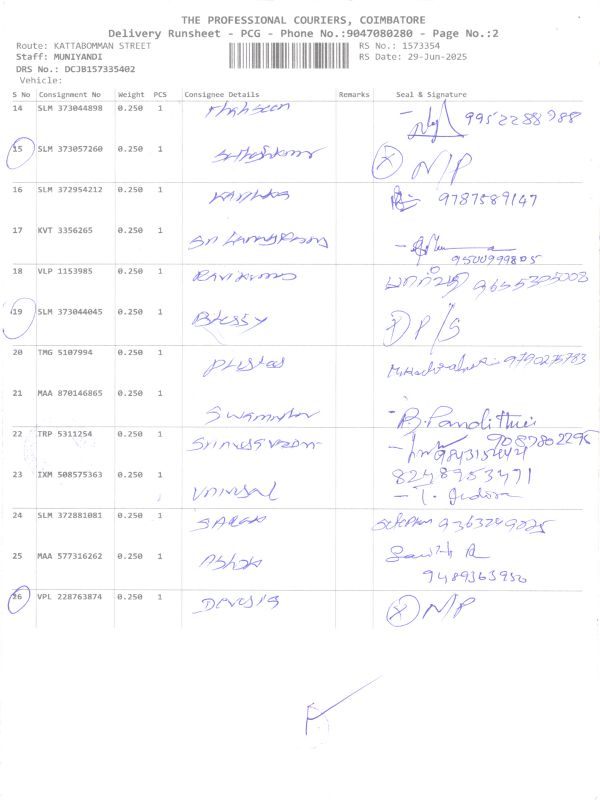 THE PROFESSIONAL COURIERS, COIMBATORE
Delivery Runsheet - PCG - Phone No.:9047080280 - Page No.:2
Route: KATTABOMMAN STREET RS No.: 1573354
Staff: MUNIYANDI RS Date: 29-Jun-2025
DRS No.: DCJB157335402
Vehicle:
S No Consignment No Weight PCS Consignee Details Remarks Seal & Signature
14 SLM 373044898 0.250 1 9952288988
15 SLM 373057260 0.250 1 Sathishkumar N/P
16 SLM 372954212 0.250 1 Karthika 9787589147
17 KVT 3356265 0.250 1 9500999805
18 VLP 1153985 0.250 1 Ravikumar 9655305008
19 SLM 373044045 0.250 1 Blessy D/S
20 TMG 5107994 0.250 1 9790275783
21 MAA 870146865 0.250 1 B.Pandithui
22 TRP 5311254 0.250 1 9087802295
23 IXM 508575363 0.250 1 Universal 8248953471
24 SLM 372881081 0.250 1 9363249025
25 MAA 577316262 0.250 1 Ashok
9489363950
26 VPL 228763874 0.250 1 N/P